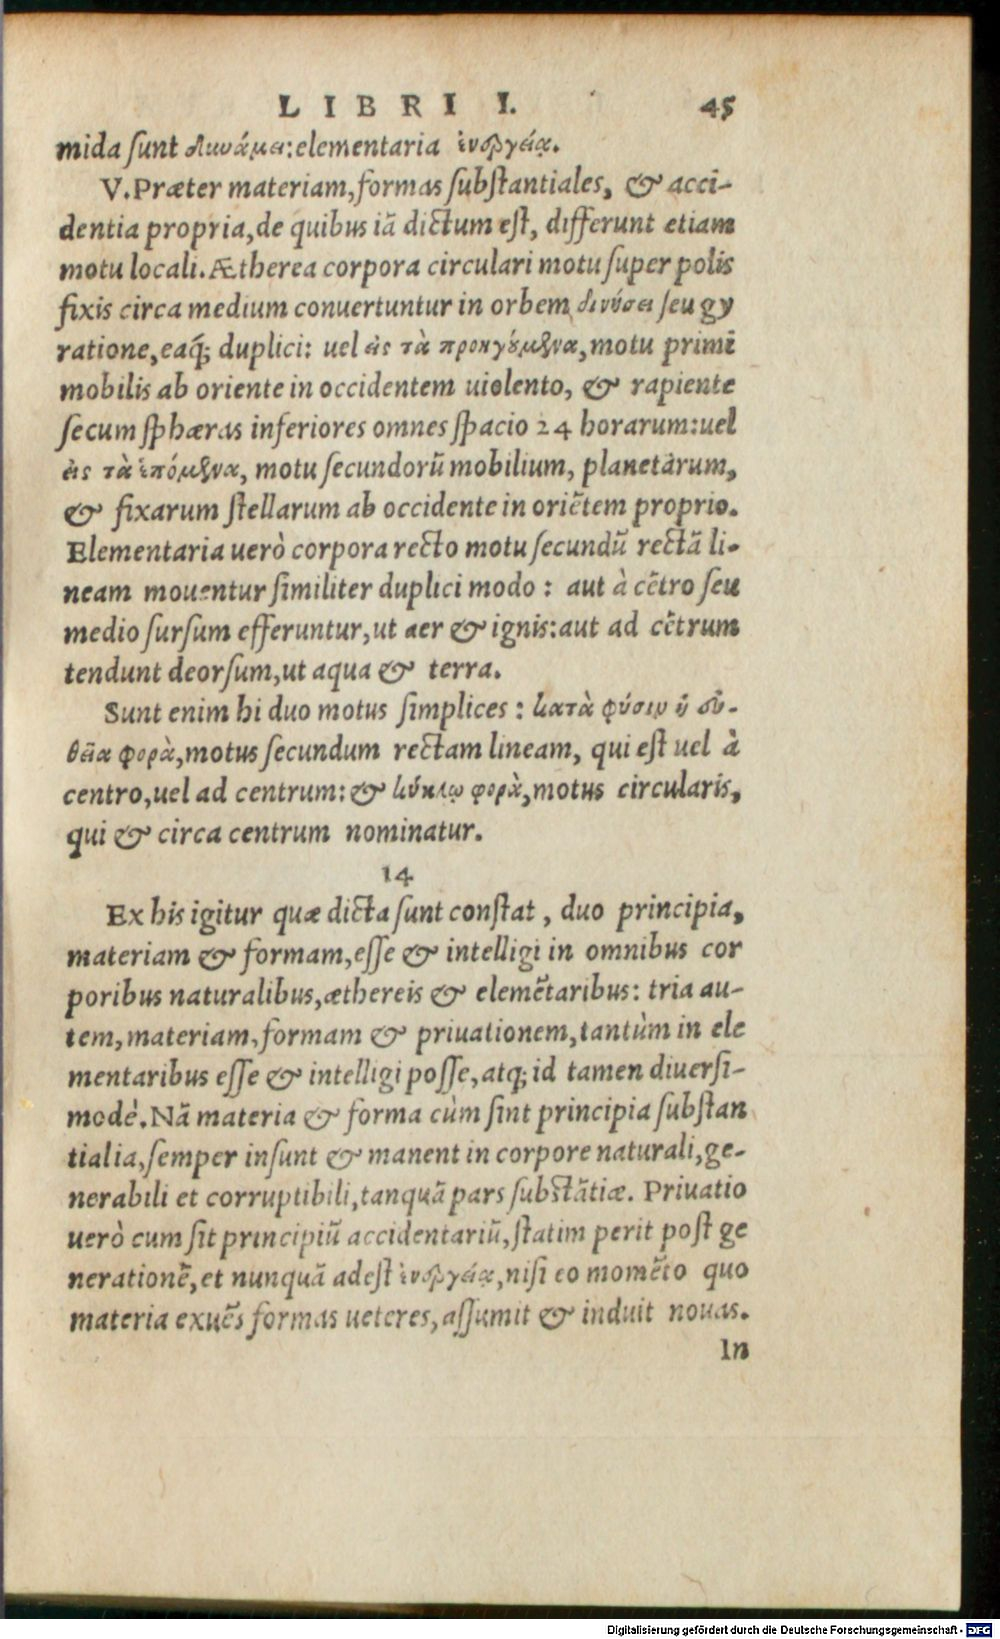 LIBRI I. 45
mida sunt δυνάμει: elementaria ἐνεργείᾳ.
V. Præter materiam, formas substantiales, & acci-
dentia propria, de quibus iã dictum est, differunt etiam
motu locali. Ætherea corpora circulari motu super polis
fixis circa medium conuertuntur in orbem δινήσει seu gy
ratione, eaq́; duplici: uel εἰς τὰ προηγούμενα, motu primi
mobilis ab oriente in occidentem uiolento, & rapiente
secum sphæras inferiores omnes spacio 24 horarum: uel
εἰς τὰ ἑπόμενα, motu secundorũ mobilium, planetarum,
& fixarum stellarum ab occidente in oriẽtem proprio.
Elementaria uerò corpora recto motu secundũ rectã li-
neam mouentur similiter duplici modo: aut à cẽtro seu
medio sursum efferuntur, ut aer & ignis: aut ad cẽtrum
tendunt deorsum, ut aqua & terra.
Sunt enim hi duo motus simplices: κατὰ φύσιν ἡ εὐ-
θεῖα φορὰ, motus secundum rectam lineam, qui est uel à
centro, uel ad centrum: & κύκλῳ φορὰ, motus circularis,
qui & circa centrum nominatur.
14
Ex his igitur quæ dicta sunt constat, duo principia,
materiam & formam, esse & intelligi in omnibus cor
poribus naturalibus, æthereis & elemẽtaribus: tria au-
tem, materiam, formam & priuationem, tantùm in ele
mentaribus esse & intelligi posse, atq; id tamen diuersi-
modè. Nã materia & forma cùm sint principia substan
tialia, semper insunt & manent in corpore naturali, ge-
nerabili et corruptibili, tanquã pars substãtiæ. Priuatio
uerò cum sit principiũ accidentariũ, statim perit post ge
nerationẽ, et nunquã adest ἐνεργείᾳ, nisi eo momẽto quo
materia exuẽs formas ueteres, assumit & induit nouas.
In
Digitalisierung gefördert durch die Deutsche Forschungsgemeinschaft - DFG